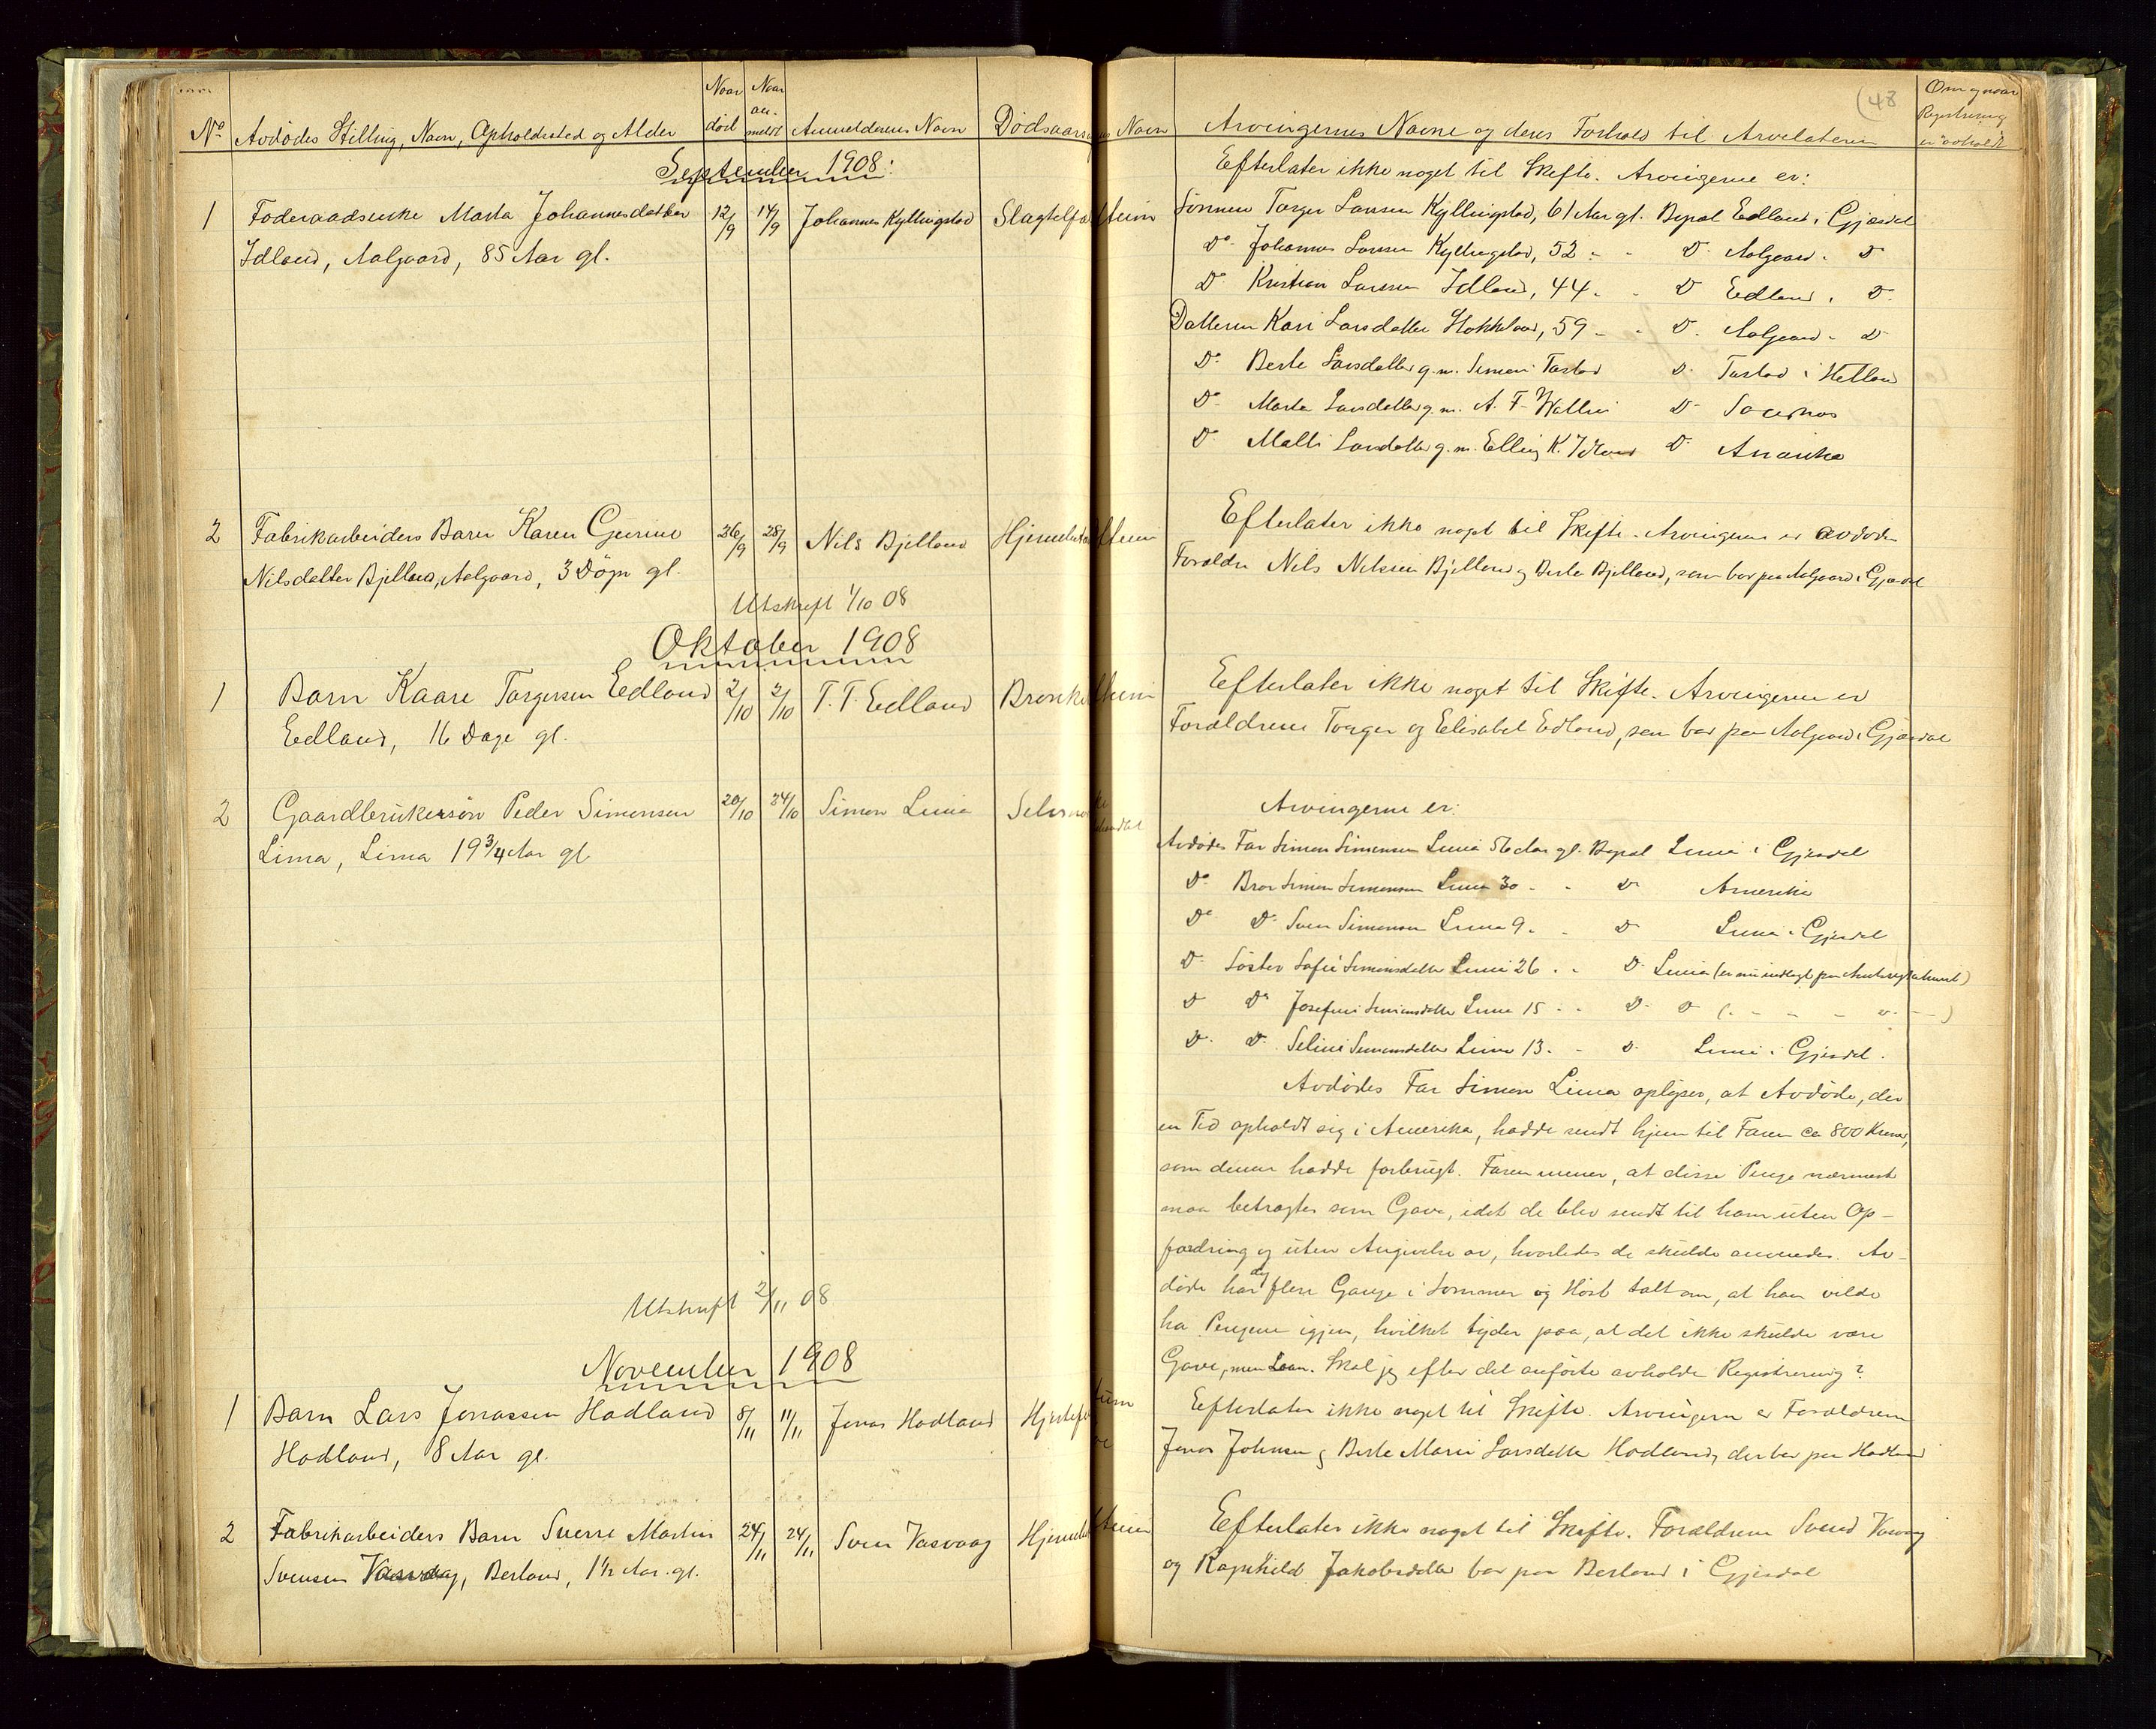 No Avdödes Stilling, Navn, Opholdssted og Alder
Naar död
Naar an-meldt
Anmelderens Navn
Dödsaarsagens Navn
September 1908:
1 Föderaadsenke Marta Johannesdatter 12/9 14/9 Johannes Kyllingstad
Idland, Aalgaard, 85 Aar gl.
2 Fabrikarbeiders Barn Karen Gurine 26/9 28/9 Nils Bjelland
Nilsdatter Bjelland, Aalgaard, 3 Dögn gl.
Utskrift 1/10 08
Oktober 1908
1 Barn Kaare Torgersen Edland 2/10 2/10 T. T. Edland
Edland, 16 Dage gl.
2 Gaardbrukersön Peder Simonsen 20/10 24/10 Simon Lima Selvmord
Lima, Lima 19 3/4 Aar gl
Utskrift 2/11 08
November 1908
1 Barn Lars Jonassen Hadland 8/11 11/11 Jonas Hadland
Hadland, 8 Aar gl.
2 Fabrikarbeiders Barn Sverre Martin 24/11 24/11 Sven Vasvaag
Svensen Vasvaag, Berland, 1½ Aar. gl.
(48
Arvingernes Navne og deres Forhold til Arvelateren
Om og naar Registrering er avholdt
Efterlater ikke noget til Skifte. Arvingerne er:
Sönnen Torger Larsen Kyllingstad, 61 Aar gl. Bopæl Edland i Gjesdal
Do Johannes Larsen Kyllingstad, 52 - - D. Aalgaard - D
Do Kristian Larsen Idland, 44 - - D Edland i D.
Datteren Kari Larsdatter Stokkeland, 59 - - D. Aalgaard - D
Do Berte Larsdatter g. m. Simon Tastad D. Tastad i Hetland
Do Marta Larsdatter g. m. A. F. Wallin D.
D Malli Larsdatter g. m. Elling K. D. Amerika
Efterlater ikke noget til Skifte. Arvingerne er avdödes
Forældre Nils Nilsen Bjelland og Berte Bjelland, som bor paa Aalgaard i Gjesdal
Efterlater ikke noget til Skifte. Arvingerne er
Forældrene Torger og Elisabet Edland, som bor paa Aalgaard i Gjesdal
Arvingerne er:
Avdödes Far Simon Simonsen Lima 56 Aar gl. Bopæl Lima i Gjesdal
Do Bror Simon Simonsen Lima 30 - - D Amerika
Do D. Sven Simonsen Lima 9 - - D Lima i Gjesdal
D. Söster Sofie Simonsdatter Lima 26 - - D. Lima (er nu indlagt paa Amtssykehuset)
D Do Josefine Simonsdatter Lima 15 - - D. D (- - - - - -)
D. D. Seline Simonsdatter Lima 13 - - D. Lima i Gjesdal.
Avdödes Far Simon Lima oplyser, at Avdöde, der
en Tid opholdt sig i Amerika, hadde sendt hjem til Faren ca 800 Kroner,
som denne hadde forbrugt. Faren mener, at disse Penge nærmest
maa betragtes som Gave, idet de blev sendt til ham uten Op-
fordring og uten Angivelse av, hvorledes de skulde anvendes. Av-
döde har dog flere Gange i Sommer og Höst talt om, at han vilde
ha Pengene igjen, hvilket tyder paa, at det ikke skulde være
Gave, men Laan. Skal jeg efter det anförte avholde Registrering?
Efterlater ikke noget til Skifte. Arvingerne er Forældrene
Jonas Johnsen og Berte Marie Larsdatter Hadland, der bor paa Hadland
Efterlater ikke noget til Skifte. Forældrene Svend Vasvaag
og Ragnhild Jakobsdatter bor paa Berland i Gjesdal